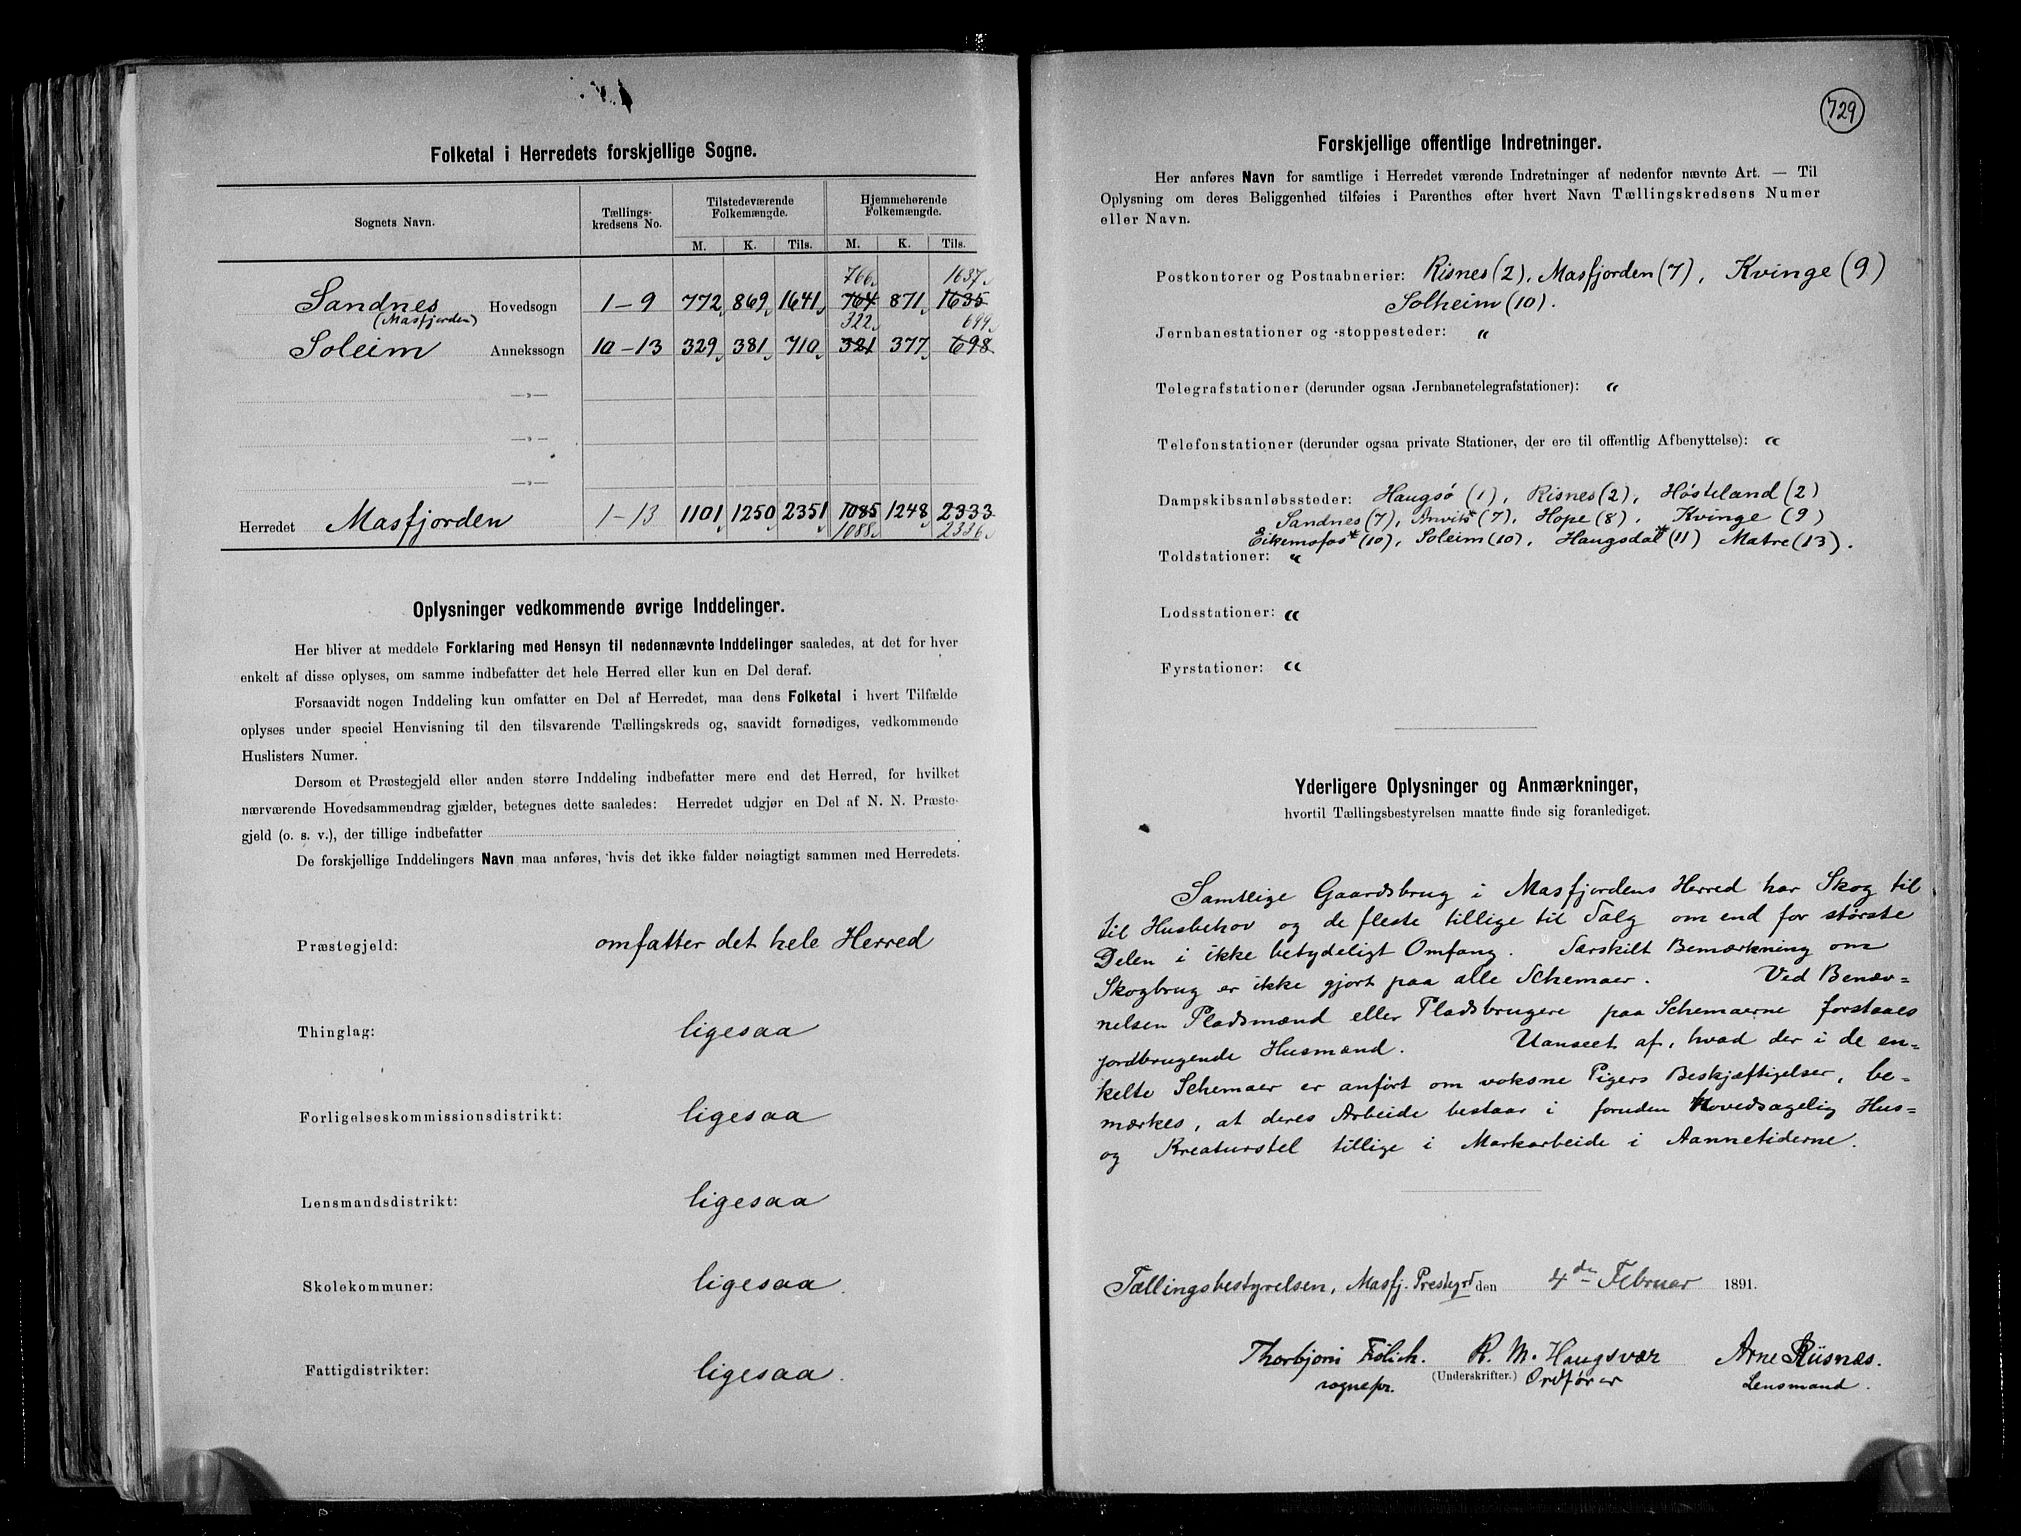 Folketal i Herredets forskjellige Sogne.
Sognets Navn. Tællings-kredsens No. Tilstedeværende Folkemængde. Hjemmehørende Folkemængde.
M. K. Tils. M. K. Tils.
766 1637
Sandnes (Masfjorden) Hovedsogn 1-9 772 869 1641 764 871 1635
322 699
Soleim Annekssogn 10-13 329 381 710 321 377 698
—»—
—»—
—»—
Herredet Masfjorden 1-13 1101 1250 2351 1085 1248 2333
1088 2336
Oplysninger vedkommende øvrige Inddelinger.
Her bliver at meddele Forklaring med Hensyn til nedennævnte Inddelinger saaledes, at det for hver
enkelt af disse oplyses, om samme indbefatter det hele Herred eller kun en Del deraf.
Forsaavidt nogen Inddeling kun omfatter en Del af Herredet, maa dens Folketal i hvert Tilfælde
oplyses under speciel Henvisning til den tilsvarende Tællingskreds og, saavidt fornødiges, vedkommende
Huslisters Numer.
Dersom et Præstegjeld eller anden større Inddeling indbefatter mere end det Herred, for hvilket
nærværende Hovedsammendrag gjælder, betegnes dette saaledes: Herredet udgjør en Del af N. N. Præste-
gjeld (o. s. v.), der tillige indbefatter
De forskjellige Inddelingers Navn maa anføres, hvis det ikke falder nøiagtigt sammen med Herredets.
Præstegjeld: omfatter det hele Herred
Thinglag: ligesaa
Forligelseskommissionsdistrikt: ligesaa
Lensmandsdistrikt: ligesaa
Skolekommuner: ligesaa.
Fattigdistrikter: ligesaa.
729
Forskjellige offentlige Indretninger.
Her anføres Navn for samtlige i Herredet værende Indretninger af nedenfor nævnte Art. — Til
Oplysning om deres Beliggenhed tilføies i Parenthes efter hvert Navn Tællingskredsens Numer
eller Navn.
Postkontorer og Postaabnerier: Risnes (2), Masfjorden (7), Kvinge (9)
Solheim (10).
Jernbanestationer og -stoppesteder: "
Telegrafstationer (derunder ogsaa Jernbanetelegrafstationer): "
Telefonstationer (derunder ogsaa private Stationer, der ere til offentlig Afbenyttelse): "
Dampskibsanløbssteder: Haugsø (1), Risnes (2), Høsteland (2)
Sandnes (7), Anvik* (7), Hope (8), Kvinge (9)
Eikemofos* (10), Soleim (10), Haugsdal* (11) Matre (13).
Toldstationer: "
Lodsstationer: "
Fyrstationer: "
Yderligere Oplysninger og Anmærkninger,
hvortil Tællingsbestyrelsen maatte finde sig foranlediget.
Samtlige Gaardsbrug i Masfjordens Herred har Skog til
til Husbehov og de fleste tillige til Salg om end for største
Delen i ikke betydeligt Omfang. Særskilt Bemærkning om
Skogbrug er ikke gjort paa alle Schemaer. Ved Benæv-
nelsen Pladsmænd eller Pladsbrugere paa Schemaerne forstaaes
jordbrugende Husmænd. Uanseet af, hvad der i de en-
kelte Schemaer er anført om voksne Pigers Beskjæftigelser, be-
mærkes, at deres Arbeide bestaar i foruden hovedsagelig Hus-
og Kreaturstel tillige i Markarbeide i Aannetiderne.
Tællingsbestyrelsen, Masfj. Prestegrd den 4de Februar 1891.
Thorbjørn Frølich. R. M. Haugsvær Arne Risnæs.
sognepr. (Underskrifter.) Ordfører Lensmand.